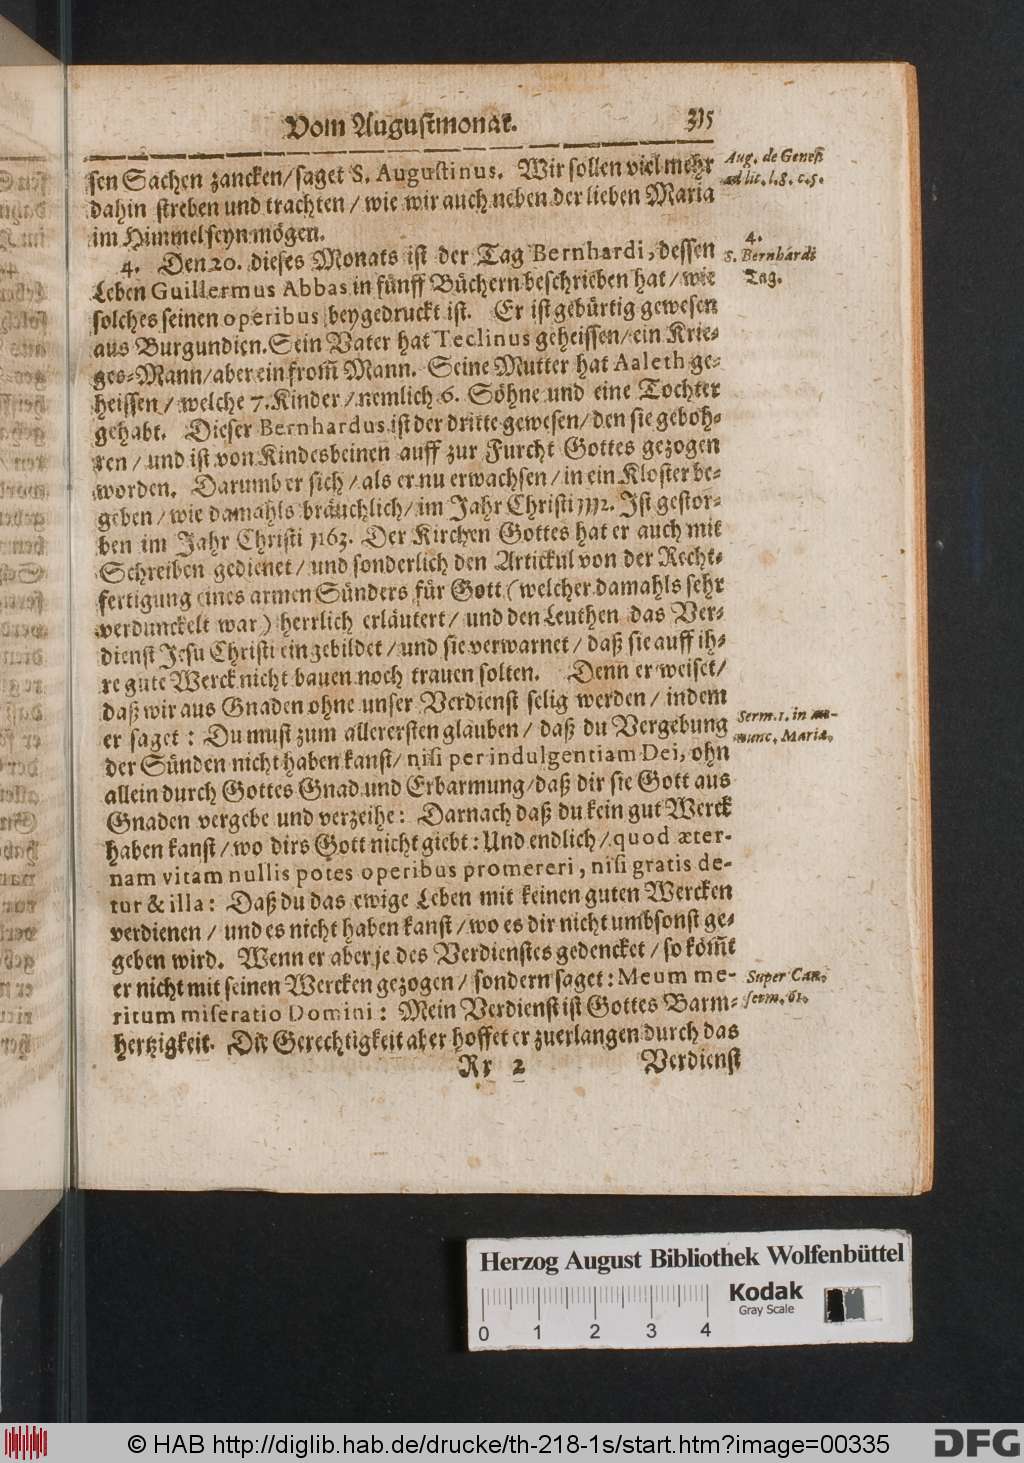 Vom Augustmonat. 315
sen Sachen zancken/saget S. Augustinus. Wir sollen viel mehr
dahin streben und trachten / wie wir auch neben der lieben Maria
im Himmel seyn mögen.
Aug. de Genes.
ad lit. l. 8. c. 5.
4. Den 20. dieses Monats ist der Tag Bernhardi, dessen
Leben Guillermus Abbas in fünff Büchern beschrieben hat / wie
solches seinen operibus beygedruckt ist. Er ist gebürtig gewesen
aus Burgundien. Sein Vater hat Teclinus geheissen/ein Krie-
ges-Mann/aber ein from̃ Mann. Seine Mutter hat Aaleth ge-
heissen / welche 7. Kinder / nemlich 6. Söhne und eine Tochter
gehabt. Dieser Bernhardus ist der dritte gewesen/den sie geboh-
ren / und ist von Kindesbeinen auff zur Furcht Gottes gezogen
worden. Darumb er sich / als er nu erwachsen / in ein Kloster be-
geben / wie damahls bräuchlich/im Jahr Christi 1112. Ist gestor-
ben im Jahr Christi 1163. Der Kirchen Gottes hat er auch mit
Schreiben gedienet / und sonderlich den Artickul von der Recht-
fertigung eines armen Sünders für Gott (welcher damahls sehr
verdunckelt war) herrlich erläutert / und den Leuthen das Ver-
dienst Jesu Christi eingebildet / und sie verwarnet / daß sie auff ih-
re gute Werck nicht bauen noch trauen solten. Denn er weiset/
daß wir aus Gnaden ohne unser Verdienst selig werden / indem
er saget: Du must zum allerersten glauben / daß du Vergebung
der Sünden nicht haben kanst/ nisi per indulgentiam Dei, ohn
allein durch Gottes Gnad und Erbarmung/daß dir sie Gott aus
Gnaden vergebe und verzeihe: Darnach daß du kein gut Werck
haben kanst / wo dirs Gott nicht giebt: Und endlich / quod æter-
nam vitam nullis potes operibus promereri, nisi gratis de-
tur & illa: Daß du das ewige Leben mit keinen guten Wercken
verdienen / und es nicht haben kanst / wo es dir nicht umbsonst ge-
geben wird. Wenn er aber je des Verdienstes gedencket / so köm̃t
er nicht mit seinen Wercken gezogen / sondern saget: Meum me-
ritum miseratio Domini: Mein Verdienst ist Gottes Barm-
hertzigkeit. Die Gerechtigkeit aber hoffet er zuerlangen durch das
Rr 2 Verdienst
4.
S. Bernhardi
Tag.
Serm. 1. in an-
nunc. Mariæ.
Super Can.
serm. 61.
Herzog August Bibliothek Wolfenbüttel
0 1 2 3 4
Kodak
Gray Scale
© HAB http://diglib.hab.de/drucke/th-218-1s/start.htm?image=00335
DFG